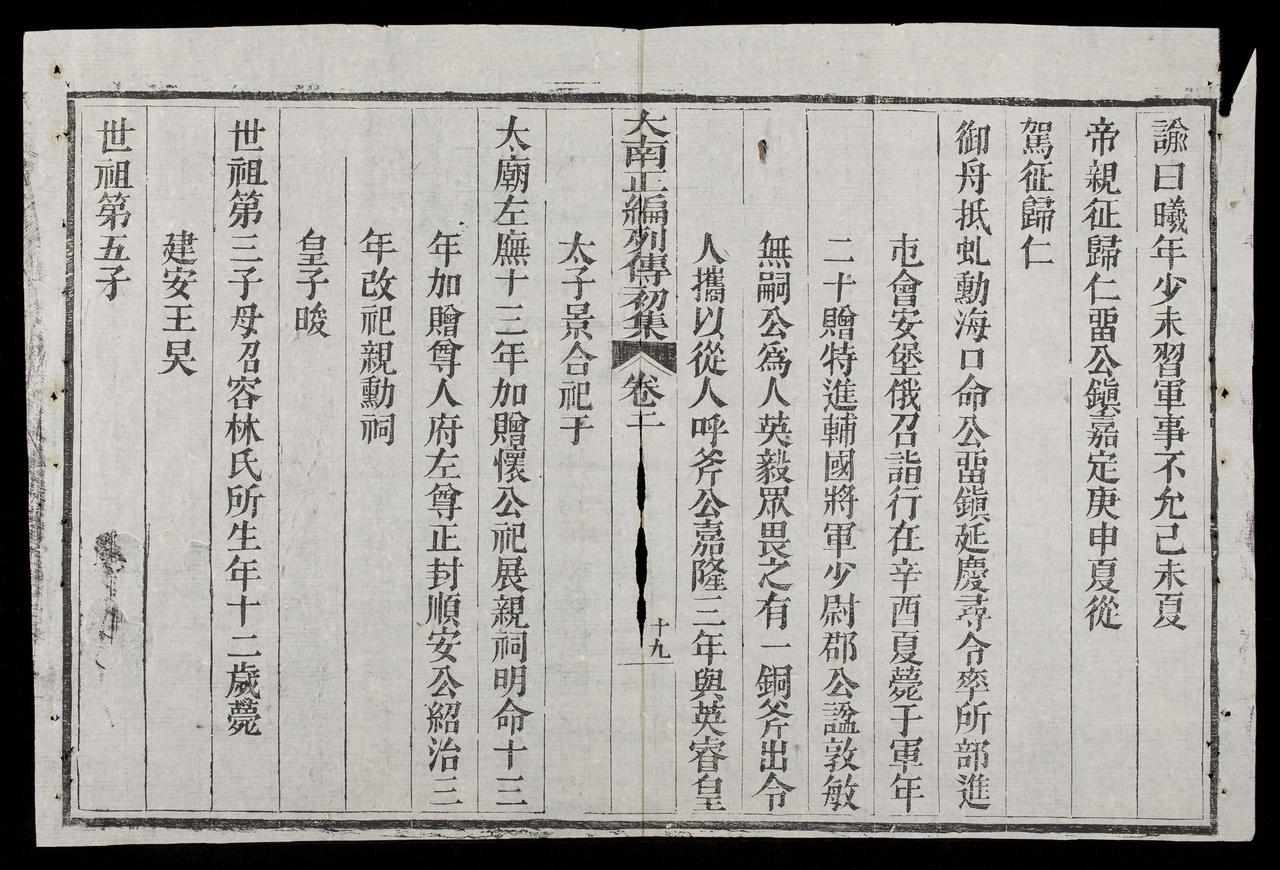 諭曰曦年少未習軍事不允己未夏
帝親征歸仁畱公鎭嘉定庚申夏從
駕征歸仁
御舟抵虬勳海口命公畱鎭延慶尋令率所部進
屯會安堡俄召詣行在辛酉夏薨于軍年
二十贈特進輔國將軍少尉郡公諡敦敏
無嗣公爲人英毅眾畏之有一銅斧出令
人攜以從人呼斧公嘉隆三年與英睿皇
大南正編列傳初集
卷二
十九
太子景合祀于
太廟左廡十三年加贈懷公祀展親祠明命十三
年加贈尊人府左尊正封順安公紹治三
年改祀親勳祠
皇子晙
世祖第三子母召容林氏所生年十二歲薨
建安王旲
世祖第五子